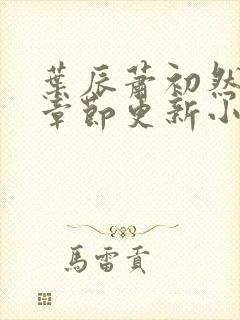 葉辰蕭初然
章節更新小
馬雷貢